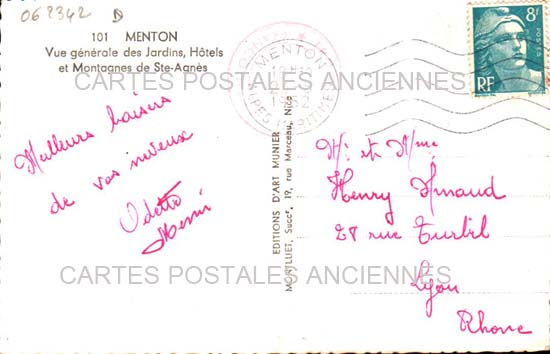 062342 D
101 MENTON
Vue générale des Jardins, Hôtels
et Montagnes de Ste-Agnès
CARTES POSTALES ANCIENNES
MENTON
1952
ALPES MARITIMES
8F
POSTES
RF
Meilleurs baisers
de vos neveux
Odette
Henri
EDITIONS D'ART MUNIER
MORTLLIET, Succr, 19, rue Marceau, Nice
Mr et Mme
Henry Arnaud
28 rue Turbil
Lyon
Rhone
CARTES POSTALES ANCIENNES